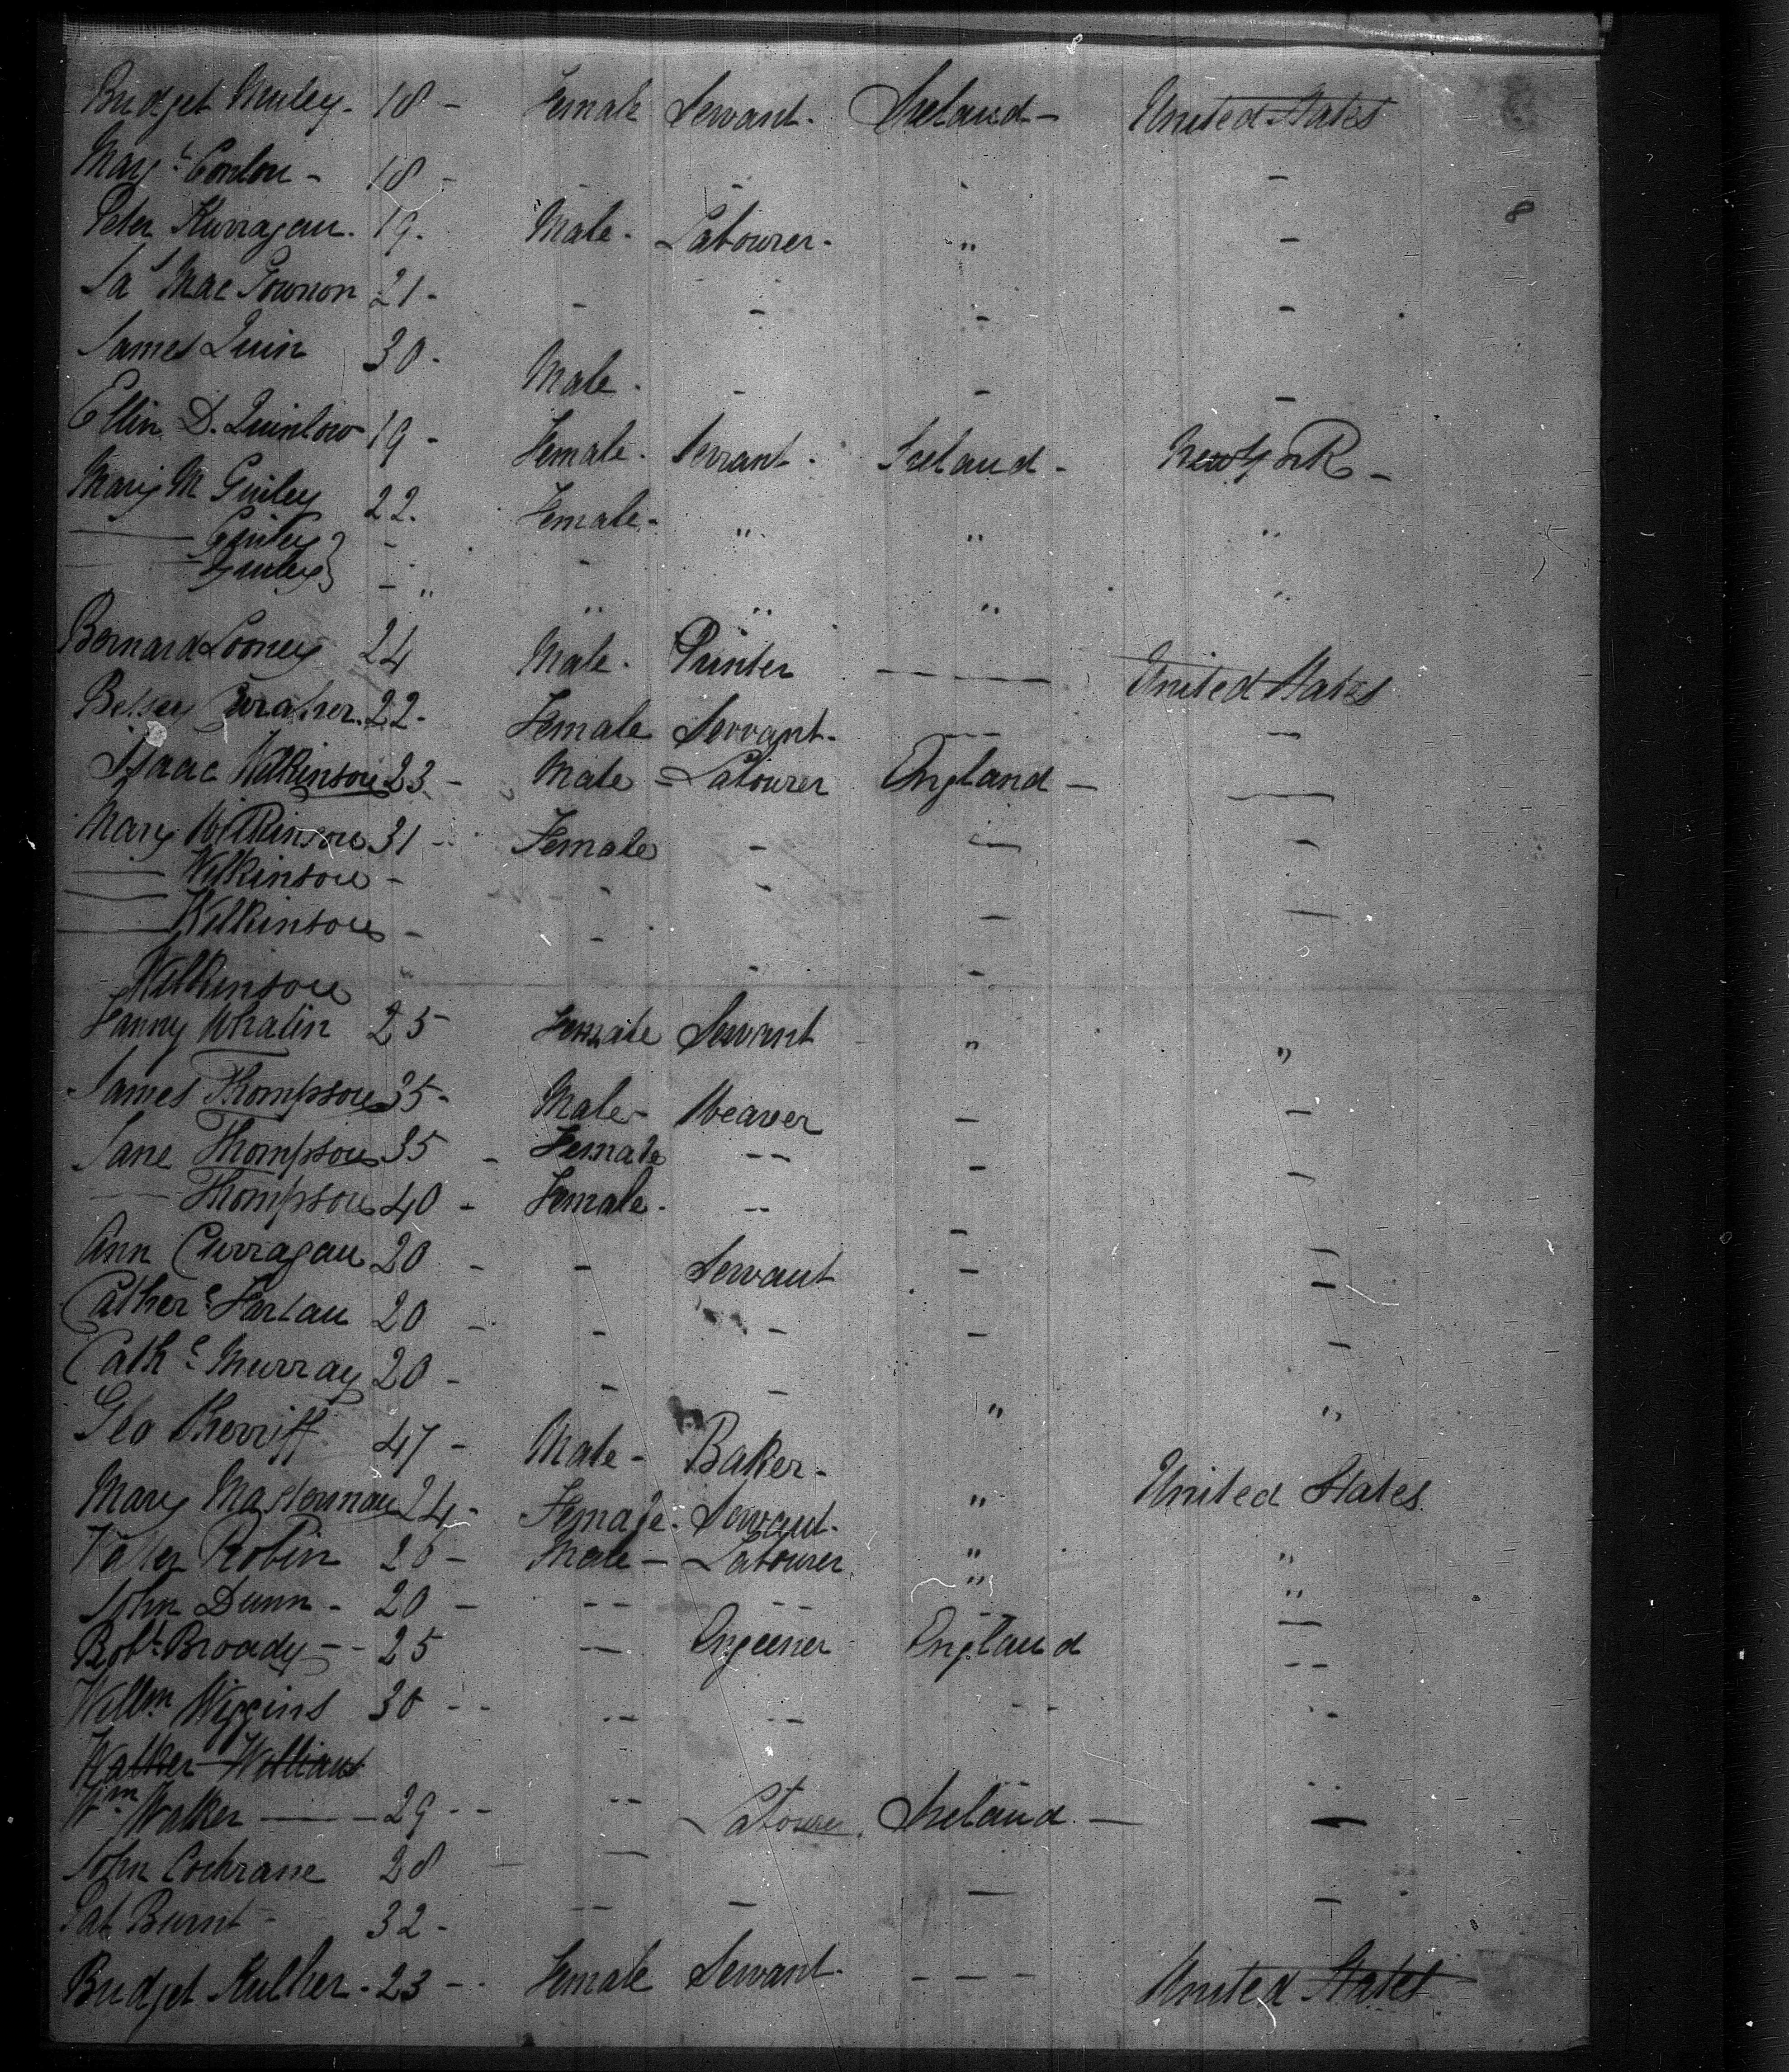 Bridget Muley - 18 - Female Servant - Ireland - United States
Marg.t Conlon - 18 - - - - -
Peter Kurragan - 19 - Male - Labourer - " -
Ja.s Mac Gownon 21 - - - - -
James Quin 30 - Male - - - -
Ellin D. Quinlow 19 - Female - Servant - Ireland - New York -
Mary M Ginley 22 - Female - " " "
—— Ginley } - -
—— Ginley } - " " " " "
Bernard Looney 24 Male - Printer - - - - United States
Betsey 22 - Female Servant - - - —
Isaac Wilkinson 23 - Male - Labourer England - ——
Mary Wilkinson 31 - Female - — -
—— Wilkinson - - -
—— Wilkinson - - — —
Wilkinson - -
Fanny Whalin 25 Female Servant " "
James Thompson 35 - Male - Weaver - -
Jane Thompson 35 - Female - - - -
—— Thompson 40 - Female - - - - -
Ann Curragan 20 - - Servant - -
Cather.e Farlan 20 - - - - -
Cath.e Murray 20 - - - " "
Geo Sherriff 47 - Male - Baker - " United States
Mary Masterman 24 - Female - Servant - "
Robin 26 - Male - Labourer " "
John Dunn - 20 - - - - - " "
Rob.t Broady - - 25 — Engeener England - -
Will.m Wiggins 30 - - - - - - - - - -
Walker William
W.m Walker —— 29 - - - - Labourer Ireland — —
John Cochrane 28 - — — -
Pat Burnt - 32 - - - -
Bridget Kulher - 23 - - Female Servant - - - - United States
8